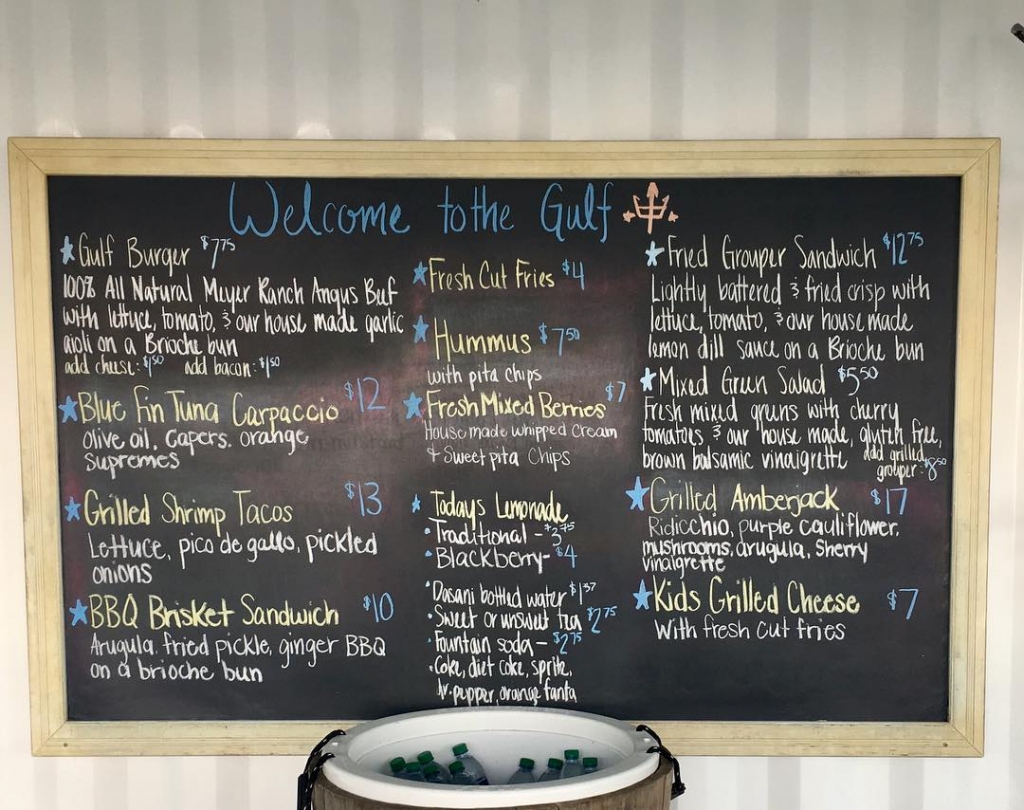 Welcome to the Gulf
Gulf Burger $7.75
100% All Natural Meyer Ranch Angus Beef
with lettuce, tomato, & our house made garlic
aioli on a Brioche bun
add cheese: $1.50 add bacon: $1.50
Blue Fin Tuna Carpaccio $12
olive oil, capers. orange
supremes
Grilled Shrimp Tacos $13
Lettuce, pico de gallo, pickled
onions
BBQ Brisket Sandwich $10
Arugula, fried pickle, ginger BBQ
on a brioche bun
Fresh Cut Fries $4
Hummus $7.50
with pita chips
Fresh Mixed Berries $7
House made whipped cream
& Sweet pita Chips
Todays Lemonade
Traditional - $3.75
Blackberry - $4
Dasani bottled water $1.37
Sweet or unsweet tea $2.75
Fountain soda - $2.75
Coke, diet coke, sprite,
dr. pepper, orange fanta
Fried Grouper Sandwich $12.75
Lightly battered & fried crisp with
lettuce, tomato, & our house made
lemon dill sauce on a Brioche bun
Mixed Green Salad $5.50
Fresh mixed greens with cherry
tomatoes & our house made, gluten free,
brown balsamic vinaigrette add grilled
grouper: $8.50
Grilled Amberjack $17
Ridicchio, purple cauliflower,
mushrooms, arugula, Sherry
vinaigrette
Kids Grilled Cheese $7
With fresh cut fries